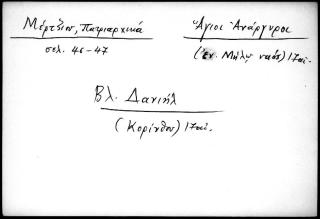 Μέρτζιου, Πατριαρχικά
σελ. 46-47
Ἅγιοι Ἀνάργυροι
(ἐν Μήλῳ ναός) 17αἰ.
Βλ. Δανιήλ
(Κορίνθου) 17αἰ.